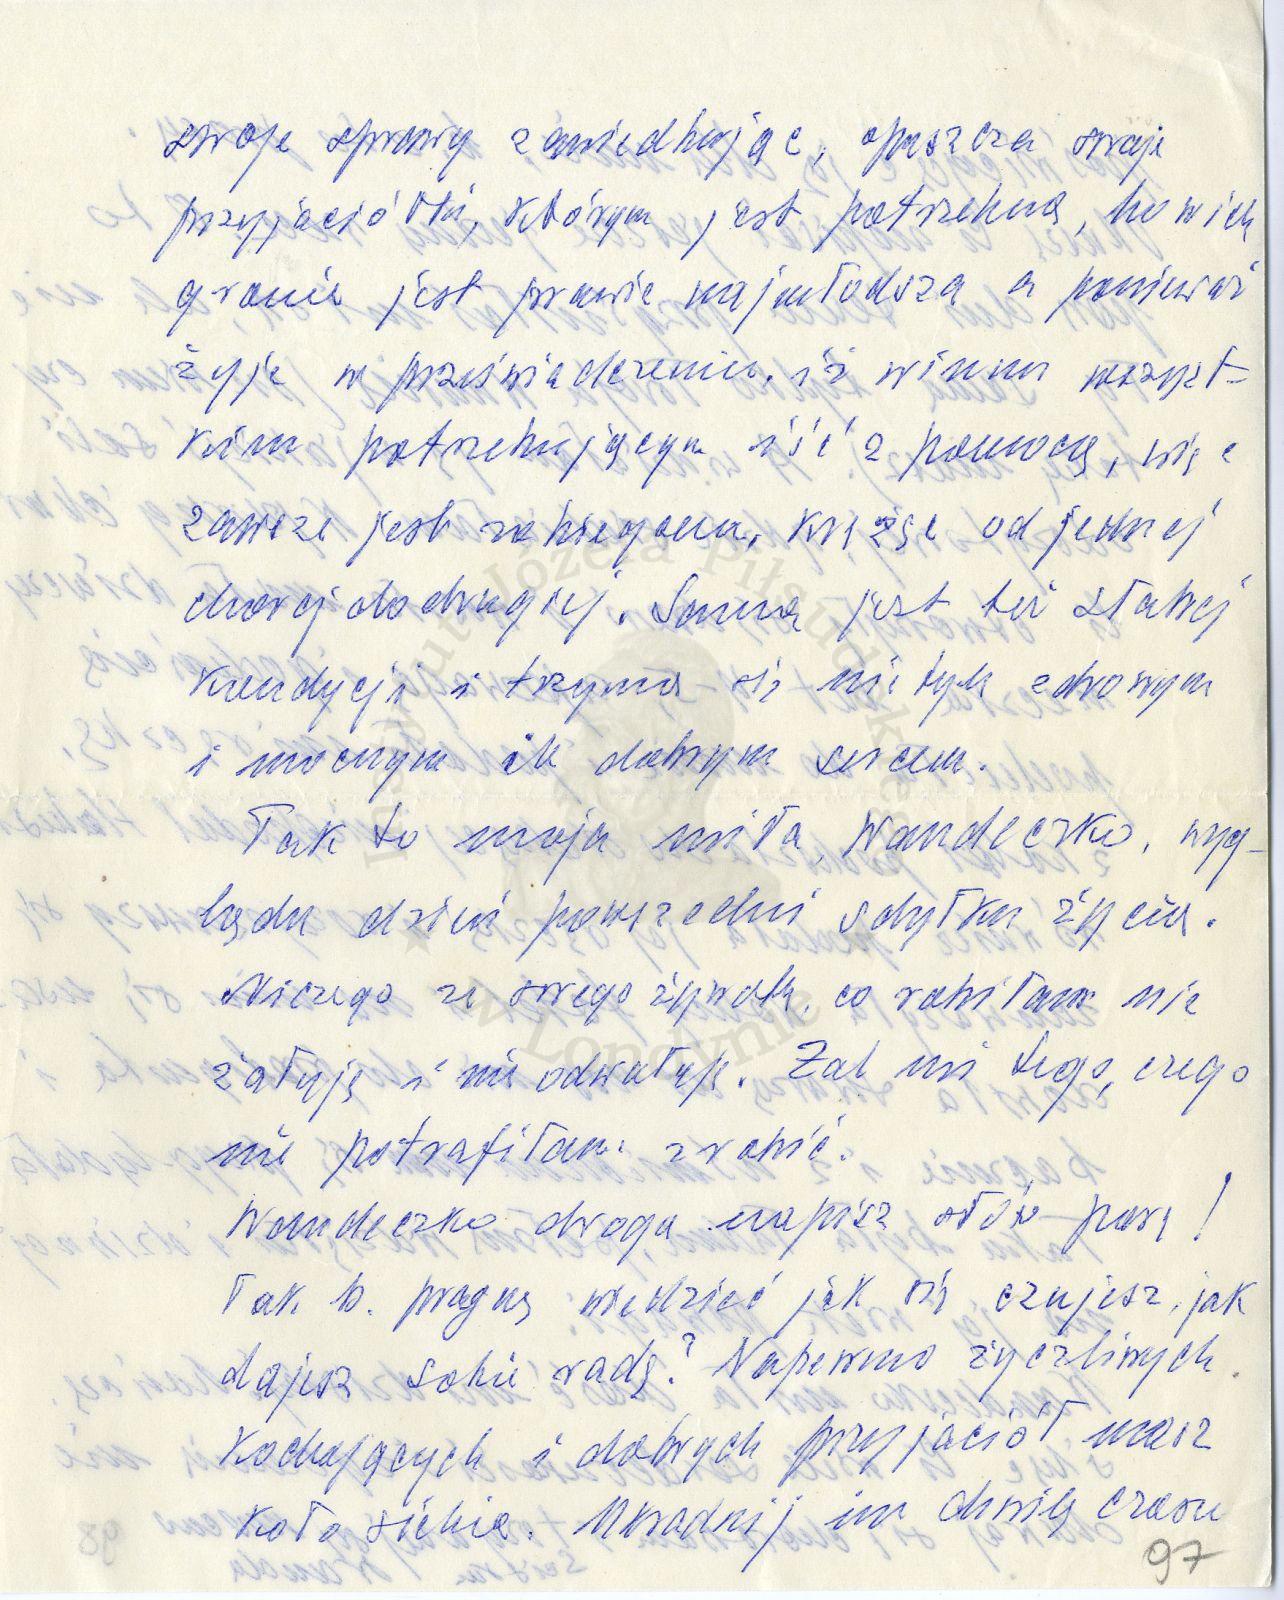 swoje sprawy zaniedbując, opuszcza swoje
przyjaciółki, którym jest potrzebna, bo w ich
gronie jest prawie najmłodsza a ponieważ
żyje w przeświadczeniu, iż winna wszyst-
kim potrzebującym iść z pomocą, więc
zawsze jest zabiegana, krążąc od jednej
chorej do drugiej. Sama jest też słabej
kondycji i trzyma się nie tyle zdrowym
i mocnym ile dobrym sercem.
Tak to moja miła, Wandeczko, wyg-
ląda dzień powszedni schyłku życia.
Niczego ze swego żywota, co robiłam nie
żałuję i nie odwołuję. Żal mi tego, czego
nie potrafiłam zrobić.
Wandeczko droga napisz słów parę!
Tak b. pragnę wiedzieć jak się czujesz, jak
dajesz sobie radę? Napewno życzliwych
kochających i dobrych przyjaciół masz
koło siebie. Ukradnij im chwilę czasu
97
Instytut Józefa Piłsudskiego
w Londynie